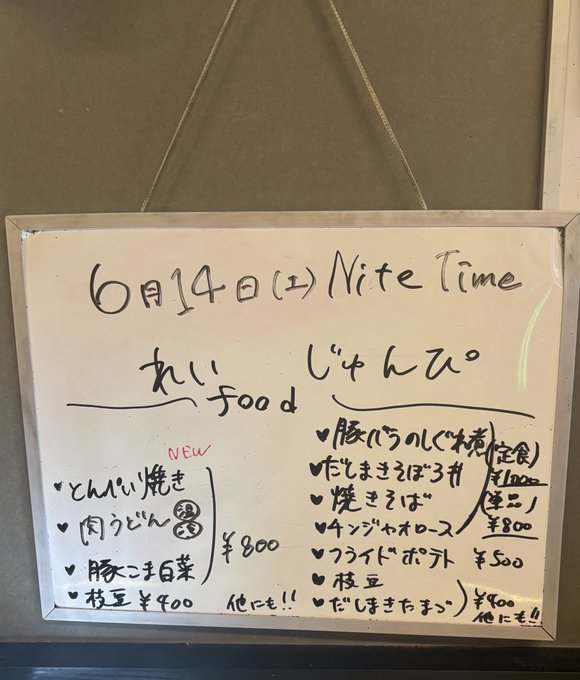 6月14日(土) Nite Time
れい
じゅんぴ
food
NEW
・とんぺい焼き
♥肉うどん 温 冷
♥豚こま白菜
¥800
♥枝豆 ¥400 他にも!!
♥豚バラのしぐれ煮
♥だしまきそぼろ丼
♥焼きそば
♥チンジャオロース
(定食)
¥1000
(単品)
¥800
♥フライドポテト ¥500
♥枝豆
♥だしまきたまご
¥400
他にも!!